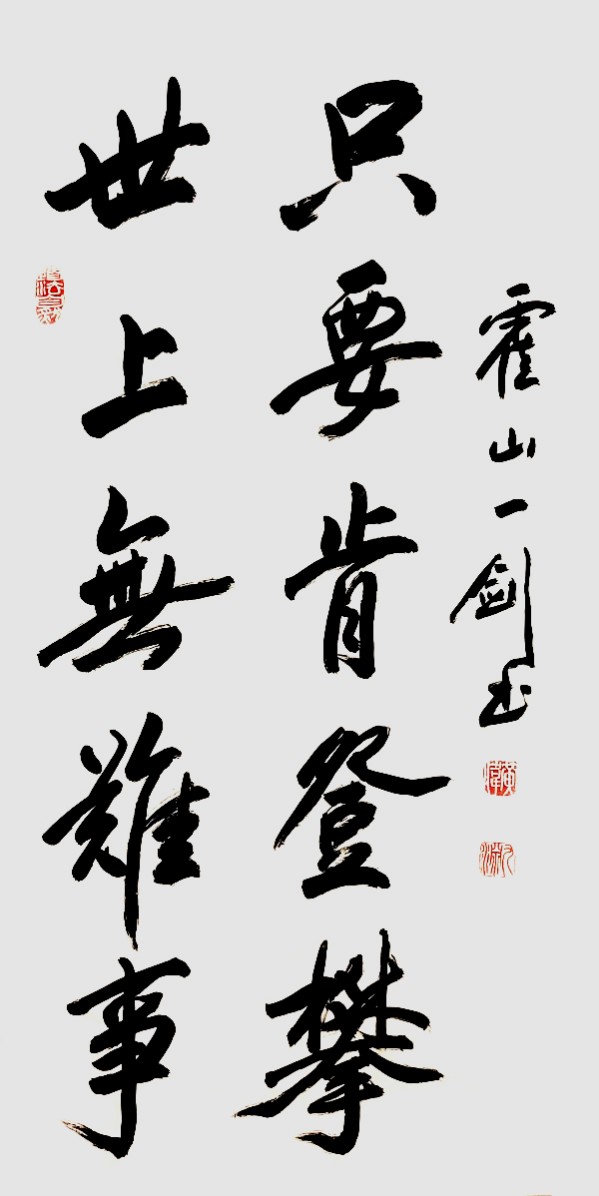 世上無難事
只要肯登攀
霍山一剑书